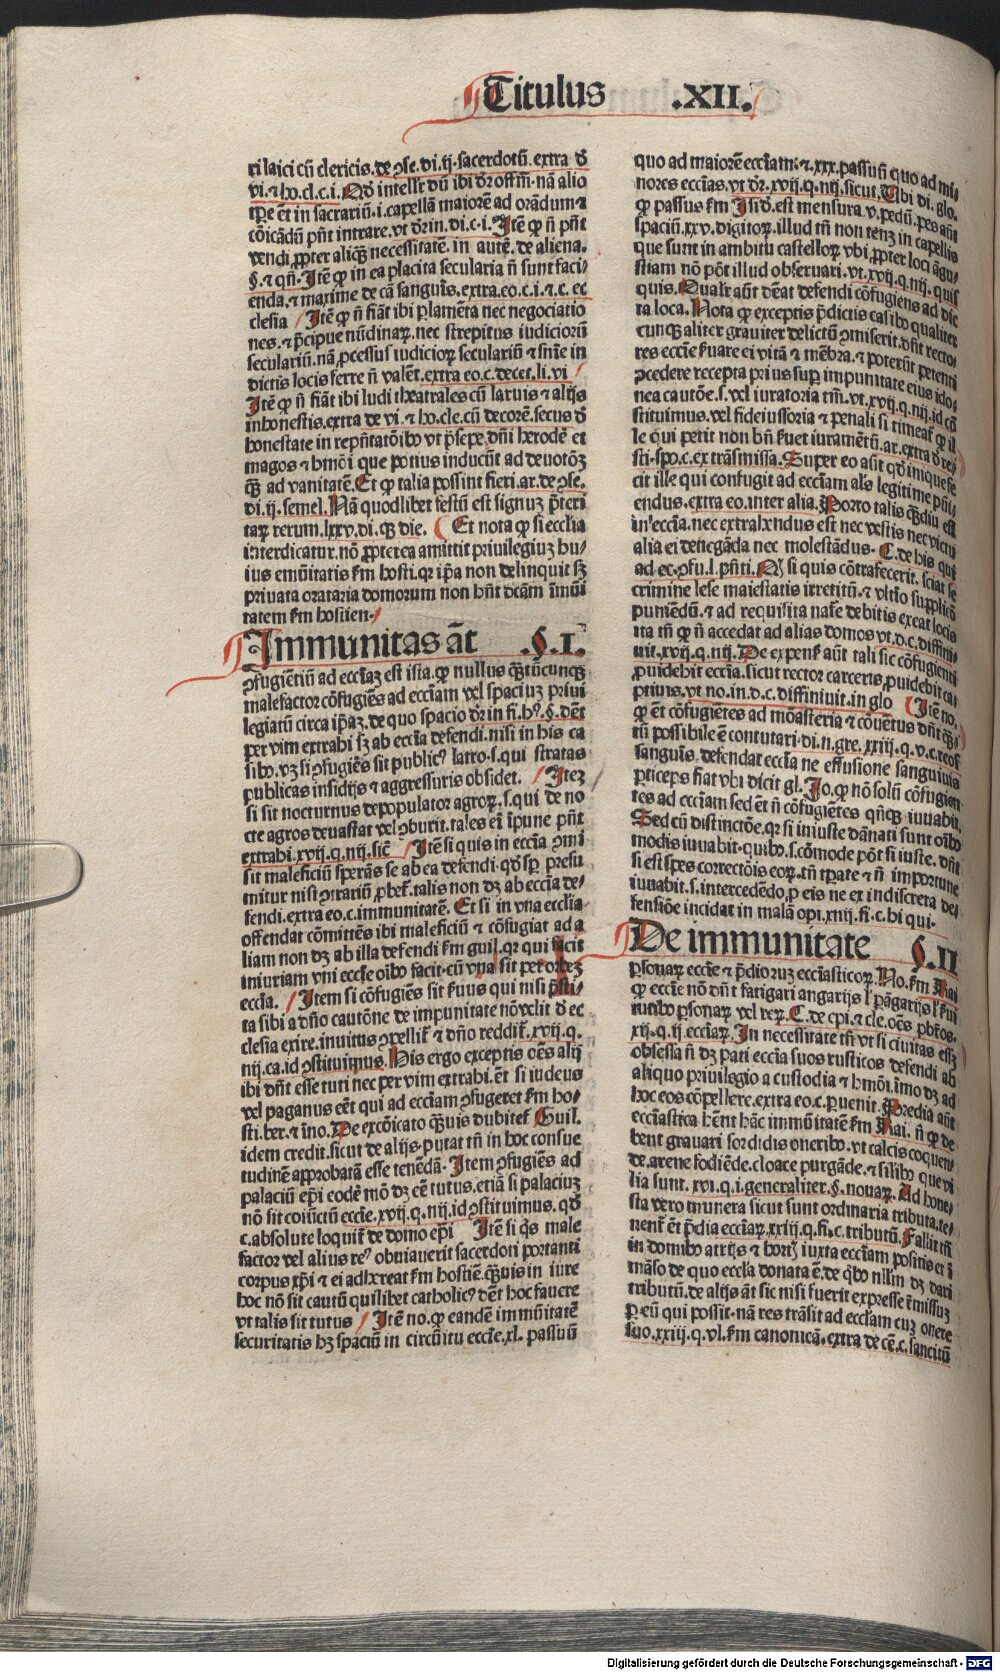 Titulus .XII.
ri laici cū clericis. de ꝯse. di. ij. sacerdotū. extra d̄
vi. ⁊ ho. cl. c. i. Qd̄ intellr̄ dū ibi dr̄ offm̄. nā alio
tꝑe ēt in sacrariū. i. capellā maiorē ad orādum ⁊
cōicādū pn̄t intrare. vt dr̄ in. di. c. i. Itē ꝙ n̄ pn̄t
vendi ꝓpter aliqꝫ necessitatē. in autē. de aliena.
§. ⁊ qn̄. Itē ꝙ in ea placita secularia n̄ sunt faci⸗
enda. ⁊ maxime de cā sanguīs. extra. eo. c. i. ⁊ c. ec
clesia Itē ꝙ n̄ fiāt ibi ꝑlamēta nec negociatio
nes. ⁊ p̄cipue nūdinaꝝ. nec strepitus iudicioriū
seculariū. nā ꝓcessus iudicioꝝ seculariū ⁊ snīe in
dictis locis ferre n̄ valēt. extra eo. c. decet. li. vi
Itē ꝙ n̄ fiāt ibi ludi theatrales cū laruis ⁊ alijs
inhonestis. extra de vi. ⁊ ho. cle. cū decorē. secus d̄
honestate in repn̄tatōibꝰ vt p̄sepe dn̄i herodē et
magos ⁊ hmōi que potius inducūt ad deuotōꝫ
qꝫ̄ ad vanitatē. Et ꝙ talia possint fieri. ar. de ꝯse.
di. ij. semel. Nā quodlibet festū est signuꝫ p̄teri
taꝝ rerum. lxxv. di. qꝫ die. Et nota ꝙ si ecclia
interdicatur. nō ꝓpterea amittit priuilegiuꝫ hu⸗
ius emūitatis ẜm hosti. qꝛ ip̄a non delinquit sꝫ
priuata orataria domorum non hn̄t dcām īmūi
tatem ẜm hostien.
Immunitas āt .§. I.
ꝯfugientiū ad eccliaꝫ est ista. ꝙ nullus qꝫ̄tūcunqꝫ
malefactor cōfugiēs ad eccliam vel spaciuꝫ priui
legiatū circa ip̄aꝫ. de quo spacio dr̄ in fi. hꝰ. §. dꝫt
per vim extrahi sꝫ ab ecclia defendi. nisi in his ca
sibꝰ. vꝫ si ꝯfugiēs sit publicꝰ latro. s. qui stratas
publicas insidijs ⁊ aggressuris obsidet. Iteꝫ
si sit nocturnus depopulator agroꝝ. s. qui de no
cte agros deuastat vel ꝯburit. tales ei īpune pn̄t
extrahi. xvij. q. iiij. sic̄ Itē si quis in ecclia ꝯmi
sit maleficiū sperās se ab ea defendi. qd̄ sp̄ presu
mitur nisi ꝯtrariū ꝓbet̄. talis non dꝫ ab ecclia de⸗
fendi. extra eo. c. immunitatē. Et si in vna ecclia
offendat cōmittēs ibi maleficiū ⁊ cōfugiat ad a
liam non dꝫ ab illa defendi ẜm guil. qꝛ qui facit
iniuriam vni eccle oībꝰ facit. cū vna sit per orbeꝫ
eccla. Item si cōfugiēs sit ẜuus qui nisi p̄sti⸗
ta sibi a dn̄o cautōne de impunitate nō velit d̄ ec
clesia exire. inuitus ꝯpellit̄ ⁊ dn̄o reddit̄. xvij. q.
iiij. ca. id ꝯstituimus. His ergo exceptis oēs alij
ibi dn̄t esse tuti nec per vim extrahi. ēt si iudeus
vel paganus eēt qui ad eccliam ꝯfugeret ẜm ho⸗
sti. ber. ⁊ īno. De excōicato qꝫ̄uis dubitet̄ Guil.
idem credit. sicut de alijs. putat tn̄ in hoc consue
tudinē approbatā esse tenēdā. Item ꝯfugiēs ad
palaciū ep̄i eodē mō dꝫ eē tutus. etiā si palaciuꝫ
nō sit coiūctū ecclīe. xvij. q. iiij. id ꝯstituimus. qd̄
c. absolute loquit̄ de domo ep̄i Itē si qͥs male
factor vel alius reꝰ obuiauerit sacerdoti portanti
corpus xp̄i ⁊ ei adhereat ẜm hostiē. qꝫ̄uis in iure
hoc nō sit cautū quilibet catholicꝰ dꝫt hoc fauere
vt talis sit tutus Itē no. ꝙ eandē immūitatē
securitatis hꝫ spaciū in circūitu ecclīe. xl. passuū
quo ad maiorē eccliam. ⁊ xxx. passuū quo ad mi⸗
nores ecclīas. vt dr̄. xvij. q. iiij. sicut. Vbi di. glo.
ꝙ passus ẜm Isid̄. est mensura. v. pedū. pes aūt
spaciū. xxv. digitoꝝ. illud tn̄ non tenꝫ in capellis
que sunt in ambitu castelloꝝ vbi ꝓpter loci āgu⸗
stiam nō pōt illud obseruari. vt. xvij. q. iiij. quis
quis. Qualr̄ aūt dēat defendi cōfugiens ad dic
ta loca. Nota ꝙ exceptis p̄dictis casibꝰ qualiter
cunqꝫ aliter grauiter delictū ꝯmiserit. dn̄t recto⸗
res ecclīe ẜuare ei vitā ⁊ mēbra. ⁊ poterūt petenti
ꝯcedere recepta prius suꝑ impunitate eius ido⸗
nea cautōe. s. vel iuratoria tm̄. vt. xvij. q. iiij. id cō
stituimus. vel fideiussoria ⁊ penali si timeat̄ ꝙ il
le qui petit non bn̄ ẜuet iuramētū. ar. extra d̄ re⸗
sti. spo. c. ex trāsmissa. Super eo aūt qd̄ inique fe
cit ille qui confugit ad eccliam al̄s legitime pūi⸗
endus. extra eo. inter alia. Porro talis qꝫ̄diu est
in ecclīa. nec extrahendus est nec vestis nec victꝰ
alia ei denegāda nec molestādus. C. de his qui
ad ec. ꝯfu. l. pn̄ti. Qd̄ si quis cōtrafecerit. sciat se
crimine lese maiestatis irretitū. ⁊ vltīo supplicō
puniēdū. ⁊ ad requisita naſe debitis exeat locis
ita tn̄ ꝙ n̄ accedat ad alias domos vt. d. c. diffini⸗
uit. xvij. q. iiij. De expens̄ aūt tali sic cōfugienti
ꝓuidebit ecclīa. sicut rector carceris ꝓuidebit ca⸗
ptiuis. vt no. in. d. c. diffiniuit. in glo Itē no.
ꝙ ēt cōfugiētes ad mōasteria ⁊ cōuētus dn̄t qꝫ̄⸗
tū possibile ē contutari. di. n. gre. xxiij. q. v. c. reos
sanguīs. defendat ecclīa ne effusione sanguinis
ꝑticeps fiat vbi dicit gl. Jo. ꝙ nō solū cōfugien
tes ad eccliam sed ēt n̄ cōfugiētes qn̄qꝫ iuuabit.
Sed cū distinctōe. qꝛ si iniuste dānati sunt oībꝰ
modis iuuabit. quibꝰ. s. cōmode pōt si iuste. dn̄t
si est spes correctōis eoꝝ. tn̄ tꝑate ⁊ n̄ importune
iuuabit. s. intercedēdo ꝓ eis ne ex indiscreta de⸗
fensiōe incidat in malā opi. xiiij. fi. c. hi qui.
De immunitate §. II
ꝑsonaꝝ ecclīe ⁊ p̄dioruꝫ ecclīasticoꝝ. No. ẜm Rai
ꝙ ecclīe nō dn̄t fatigari angarijs l̄ ꝑāgarijs l̄ ẜui
tutibꝰ ꝑsonaꝝ vel reꝝ. C. de ep̄i. ⁊ cle. oēs. pbr̄os.
xij. q. ij. eccliaꝝ. In necessitate tn̄ vt si ciuitas essꝫ
obsessa n̄ dꝫ pati ecclīa suos rusticos defendi ab
aliquo priuilegio a custodia ⁊ hmōi. īmo dꝫ ad
hoc eos cōpellere. extra eo. c. ꝑuenit. Predia aūt
eccliastica hn̄t hāc immūitatē ẜm Rai. n̄ ꝙ de
bent grauari sordidis oneribꝰ. vt calcis coquen⸗
de. arene fodiēde. cloace purgāde. ⁊ silibꝰ que vi
lia sunt. xvi. q. i. generaliter. §. nouaꝝ. Ad hone⸗
sta vero munera sicut sunt ordinaria tributa. te⸗
nent̄ ēt p̄dia eccliaꝝ. xxiij. q. fi. c. tributū. Fallit tn̄
in domibꝰ atrijs ⁊ hortꝭ iuxta eccliam positis et ī
māso de quo eccla donata ē. de qͥbꝰ nihīl dꝫ dari
tributū. de alijs āt sic nisi fuerit expresse remissuꝫ
ꝑ eū qui possit. nā res trāsit ad eccliam cuꝫ onere
suo. xxiij. q. vl. ẜm canonicā. extra de cē. c. sancitū
Digitalisierung gefördert durch die Deutsche Forschungsgemeinschaft - DFG